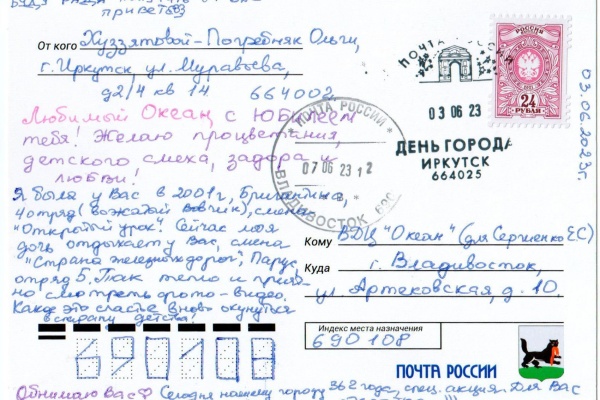 приветы!
От кого Хуззятовой-Погребняк Ольги,
г. Иркутск, ул. Муравьёва,
д 2/4 кв 14 664002
Любимый Океан, с Юбилеем
тебя! Желаю процветания,
детского смеха, задора и
любви!
Я была у Вас в 2001 г, Бригантина,
4 отряд (вожатый Вовчик), смена
"Открытый урок". Сейчас моя
дочь отдыхает у Вас, смена
"Страна железных дорог", Парус,
отряд 5. Так тепло и прият-
но смотреть фото-видео.
Какое это счастье вновь окунуться
в страну детства!
ПОЧТА РОССИИ
03 06 23
ДЕНЬ ГОРОДА
ИРКУТСК
664025
РОССИЯ
24
РУБЛЯ
03.06.2023г.
ПОЧТА РОССИИ
07 06 23 12
ВЛАДИВОСТОК
Кому ВДЦ "Океан" (для Сергиенко ЕС)
Куда г. Владивосток,
ул. Артековская, д. 10.
Индекс места назначения
690108
690108
ПОЧТА РОССИИ
Обнимаю Вас♡ Сегодня нашему городу 362 года, спец. акция. Для Вас